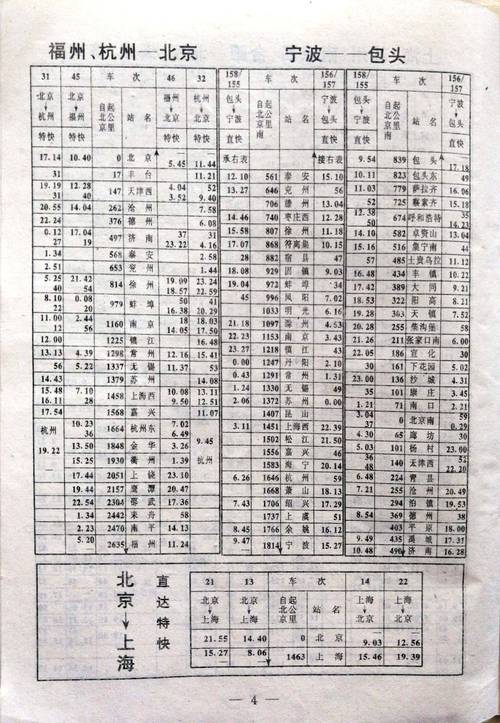 福州、杭州—北京 宁波——包头
31 45 车次 46 32
北京 杭州 特快 北京 福州 特快 自北京起公里 站名 福州 北京 特快 杭州 北京 特快
17.14 10.40 0 北京 5.45 11.44
31 17 丰台 11.21
19.19 31 12.28 40 147 天津西 4.04 3.52 52 9.40
20.55 14.04 262 沧州 7.58
22.24 376 德州 6.08
0.12 27 17.04 19 497 济南 37 23.22 31 4.16
1.34 568 泰安 2.58
2.51 653 兖州 1.44
5.25 40 21.42 54 814 徐州 19.09 18.57 23.24 22.59
8.10 22 0.08 20 979 蚌埠 50 16.38 41 20.29
11.00 12 2.44 56 1160 南京 18 14.05 18.03 17.50
12.00 1225 镇江 16.48
13.13 4.39 1298 常州 12.16 15.41
56 5.22 1337 无锡 11.37 53
14.43 1379 苏州 14.08
15.48 16.11 7.10 28 1458 上海西 10.08 9.50 13.11 12.51
17.54 1568 嘉兴 11.07
杭州 19.22 10.23 36 1664 杭州东 7.02 6.49 9.45 杭州
13.50 1848 金华 3.26
15.25 1930 衢州 1.39
17.44 2051 上饶 23.10
19.44 2157 鹰潭 20.47
22.54 2304 邵武 17.36
2442 来舟 58
2.23 2470 南平 14.13
5.20 2635 福州 11.24
158/155 车次 156/157
包头 宁波 直快 自包头起公里 站名 宁波 包头 直快
承右表 接右表
12.10 561 泰安 15.10
13.27 646 兖州 56
706 滕州 13.04
14.46 740 枣庄西 12.28
15.58 807 徐州 11.18
17.07 868 符离集 10.15
28 882 宿县 47
18.08 929 固镇 9.03
19.04 972 蚌埠 34
45 996 凤阳 7.02
1033 明光 6.16
21.18 1097 滁州 4.53
22.23 1153 南京 3.43
23.27 1218 镇江 43
0.00 1247 丹阳 2.10
0.43 1291 常州 1.31
1.24 1330 无锡 49
2.06 1372 苏州 0.00
1407 昆山
3.11 1451 上海西 22.39
1502 松江 21.50
1556 嘉兴 46
1583 海宁 20.14
6.26 1646 杭州 59
1668 萧山 18.13
7.43 1706 绍兴 17.29
1737 上虞 51
8.45 1766 余姚 16.12
9.47 1814 宁波 15.27
158/155 车次 156/157
包头 宁波 直快 自包头起公里 站名 宁波 包头 直快
9.54 839 包头 17.18
10.11 823 包头东 49
11.03 779 萨拉齐 16.06
52 725 察素齐 15.18
12.38 50 674 呼和浩特 35 14.23
14.10 582 卓资山 13.04
15.16 516 集宁南 44
485 土贵乌拉 11.12
16.48 434 丰镇 10.22
17.42 389 大同 9.21
18.53 322 阳高 8.21
19.30 天镇 7.52
20.28 255 柴沟堡 58
21.26 211 张家口南 6.00
22.05 186 宣化 30
161 下花园 5.02
23.00 136 沙城 4.31
101 康庄 3.45
1.21 71 南口 2.21
3.04 37 0 北京南 0.29
4.30 65 廊坊 30
5.03 101 杨村 23.00
36 140 天津西 52 22.20
6.48 224 青县
7.21 255 沧州 20.49
294 泊镇 19.53
8.54 369 德州 38
403 平原 18.00
9.49 435 禹城 17.31
10.48 490 济南 16.28
北京→上海 直达特快
21 13 车次 14 22
北京 上海 北京 上海 自北京起公里 站名 上海 北京 上海 北京
21.55 14.40 0 北京 9.03 12.56
15.27 8.06 1463 上海 15.46 19.39
— 4 —